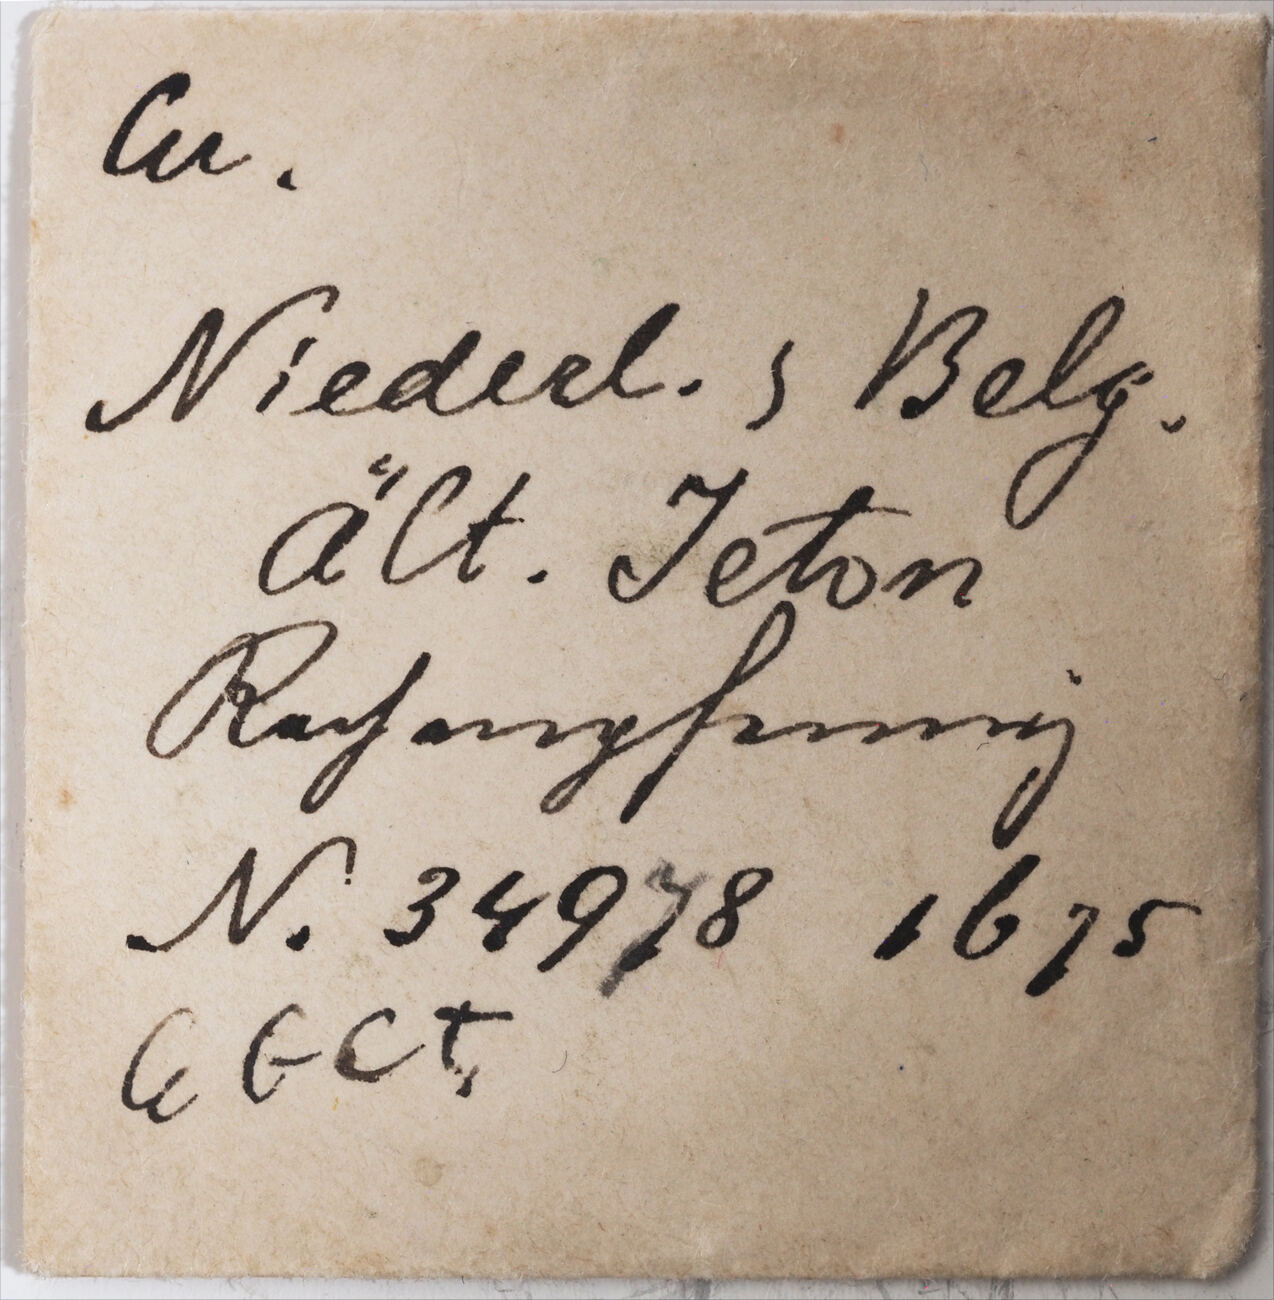 Cu.
Niederl. ; Belg.
ält. Jeton
Rechenpfennig
N. 34978 1675